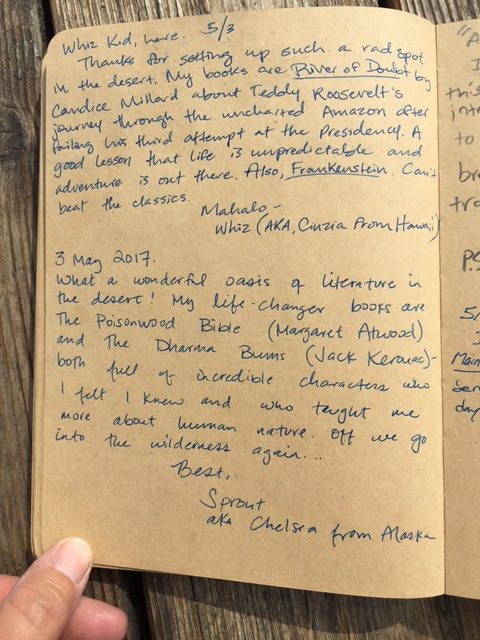 Whiz Kid, here. 5/3
Thanks for setting up such a rad spot
in the desert. My books are River of Doubt by
Candice Millard about Teddy Roosevelt's
journey through the uncharted Amazon after
failing his third attempt at the Presidency. A
good lesson that life is unpredictable and
adventure is out there. Also, Frankenstein. Can't
beat the classics.
Mahalo -
Whiz (AKA, Cinzia from Hawaii)
3 May 2017.
What a wonderful oasis of literature in
the desert! My life-changer books are
The Poisonwood Bible (Margaret Atwood)
and The Dharma Bums (Jack Kerouac)-
both full of incredible characters who
I felt I knew and who taught me
more about human nature. Off we go
into the wilderness again...
Best,
Sprout
aka Chelsea from Alaska
"A
I
this
to
bro
tra
P.S
5/
I
Main
day